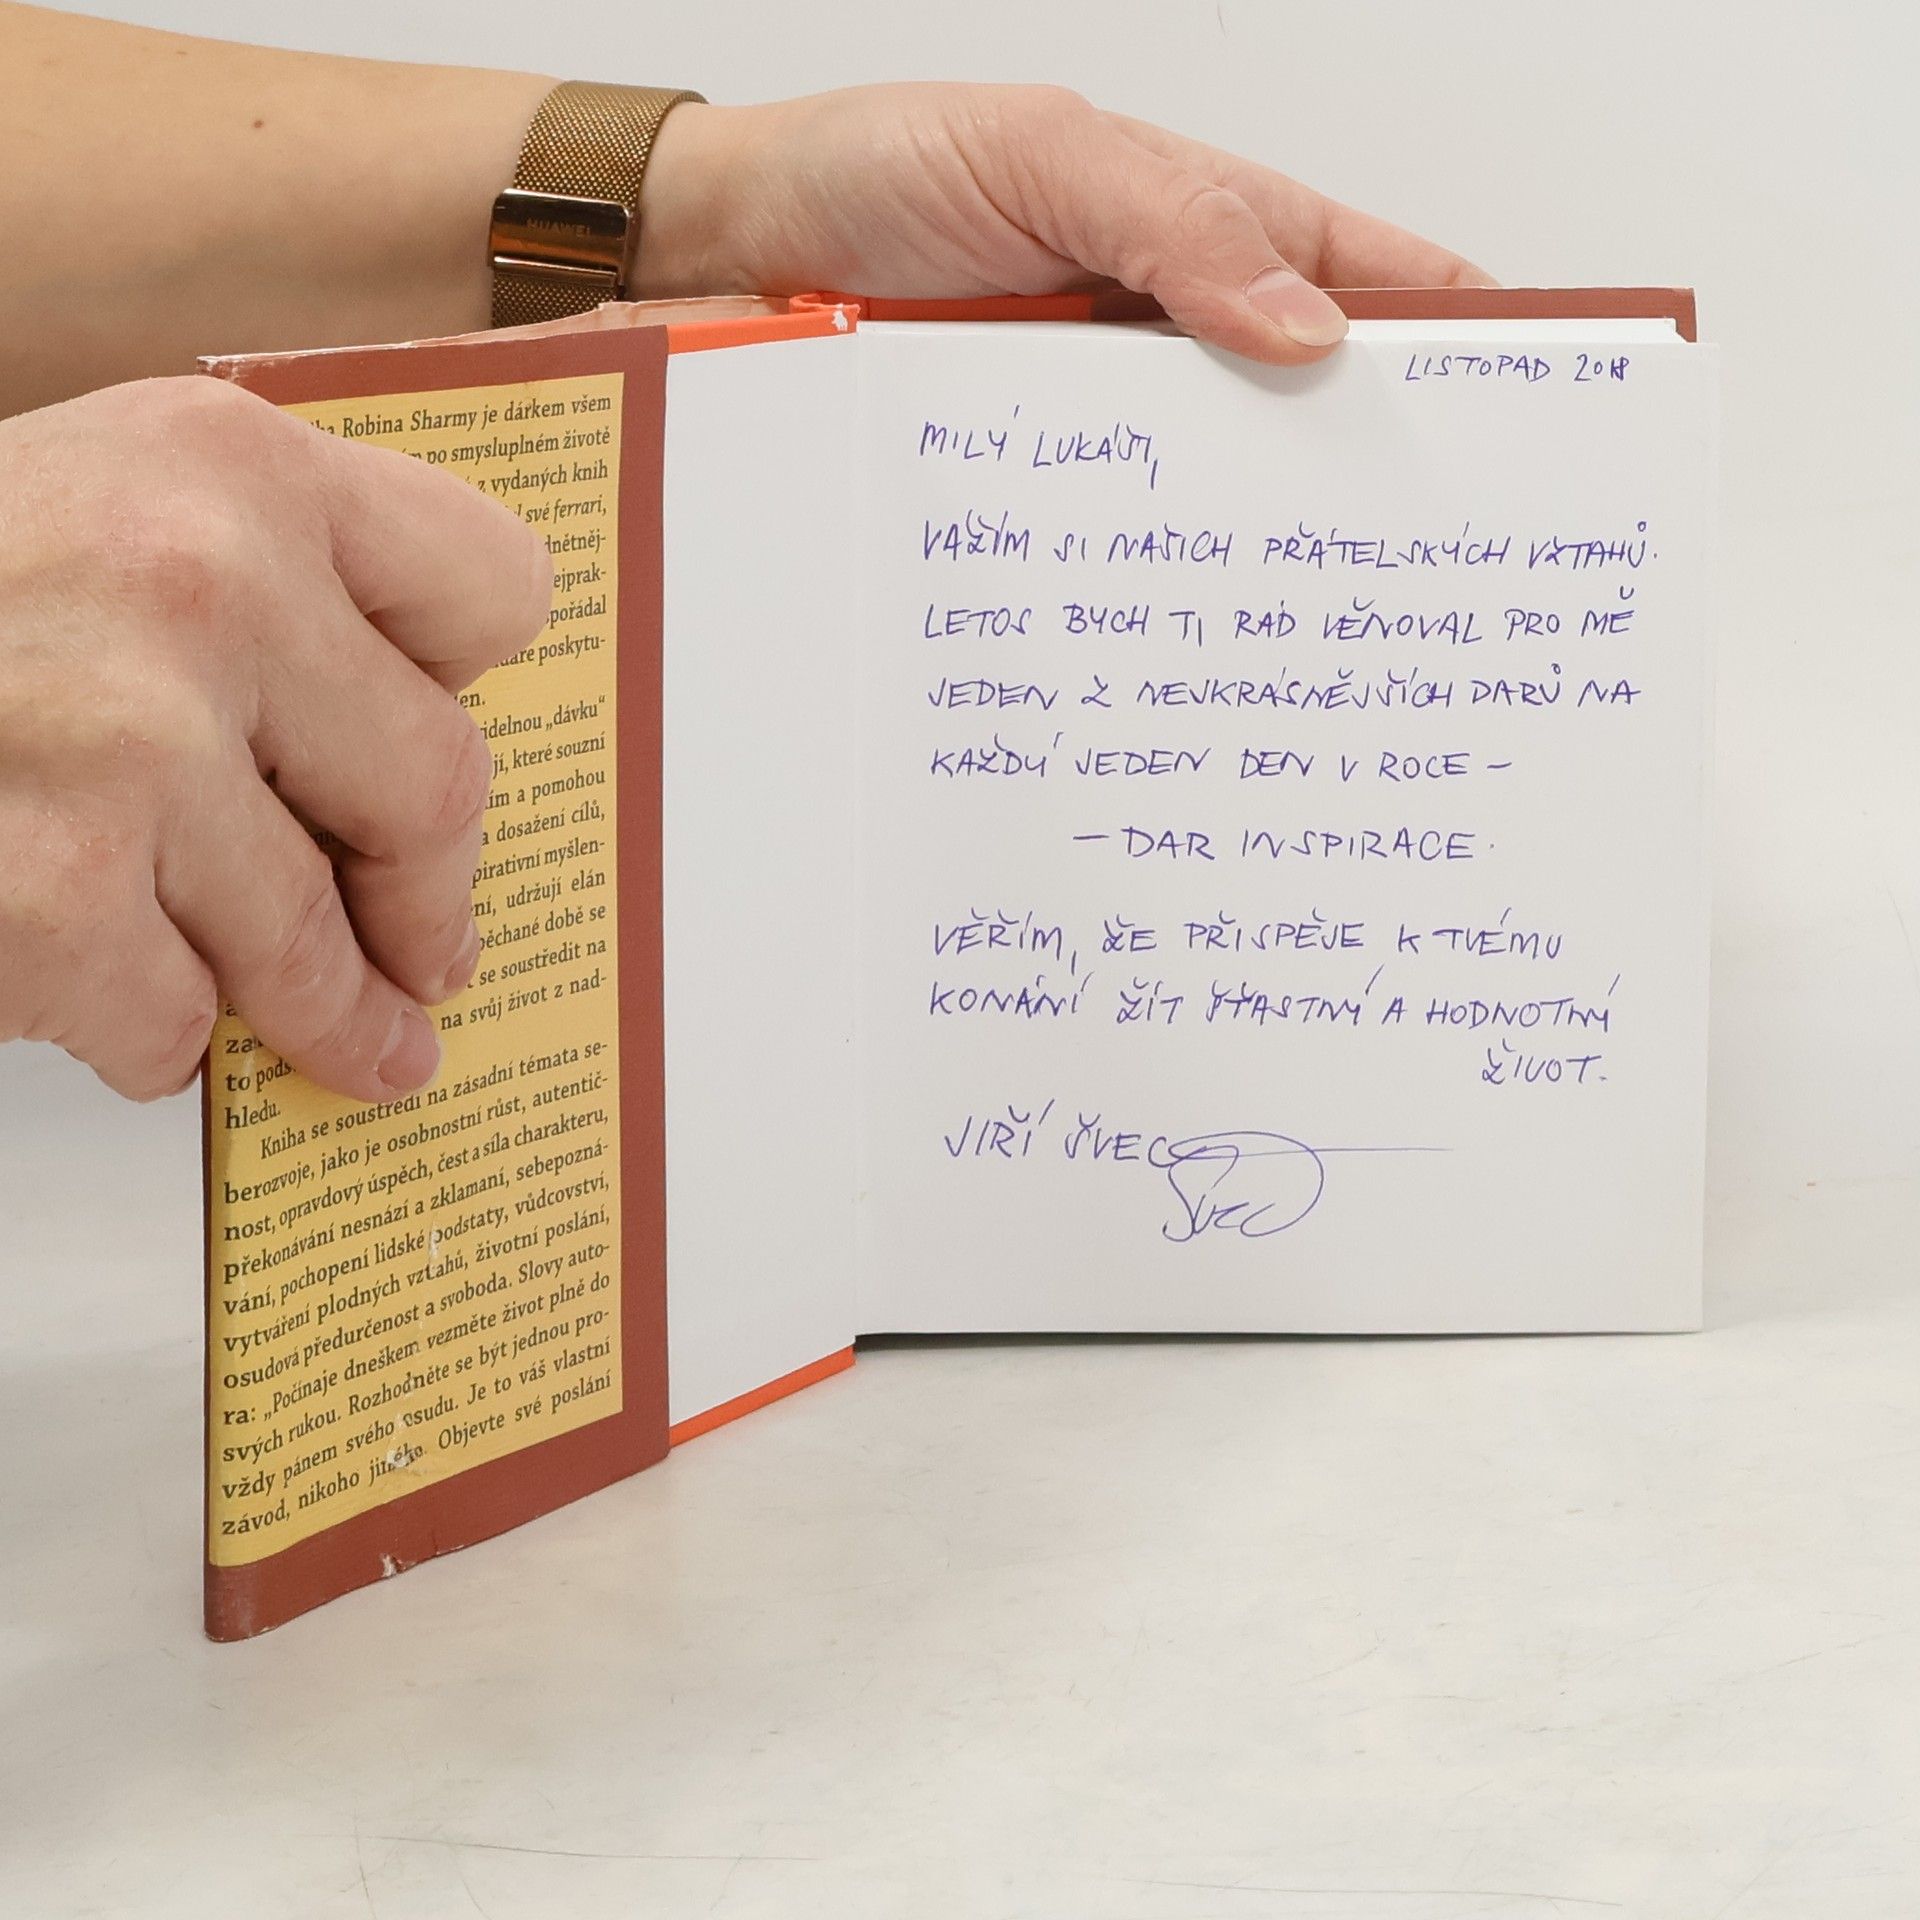 HUAWEI
Robina Sharmy je dárkem všem
po smysluplném životě
z vydaných knih
své ferrari,
dnětněj-
ejprak-
pořádal
poskytu-
en.
idelnou „dávku“
jí, které souzní
ím a pomohou
a dosažení cílů,
pirativní myšlen-
ní, udržují elán
pěchané době se
se soustředit na
na svůj život z nad-
to pods
hledu.
Kniha se soustředí na zásadní témata se-
berozvoje, jako je osobnostní růst, autentič-
nost, opravdový úspěch, čest a síla charakteru,
překonávání nesnází a zklamaní, sebepozná-
vání, pochopení lidské podstaty, vůdcovství,
vytváření plodných vztahů, životní poslání,
osudová předurčenost a svoboda. Slovy auto-
ra: „Počínaje dneškem vezměte život plně do
svých rukou. Rozhodněte se být jednou pro-
vždy pánem svého osudu. Je to váš vlastní
závod, nikoho jiného. Objevte své poslání
LISTOPAD 2018
MILÝ LUKÁŠI,
VÁŽÍM SI NAŠICH PŘÁTELSKÝCH VZTAHŮ.
LETOS BYCH TI RÁD VĚNOVAL PRO MĚ
JEDEN Z NEJKRÁSNĚJŠÍCH DARŮ NA
KAŽDÝ JEDEN DEN V ROCE –
– DAR INSPIRACE.
VĚŘÍM, ŽE PŘISPĚJE K TVÉMU
KONÁNÍ ŽÍT ŠŤASTNÝ A HODNOTNÝ
ŽIVOT.
JIŘÍ ŠVEC